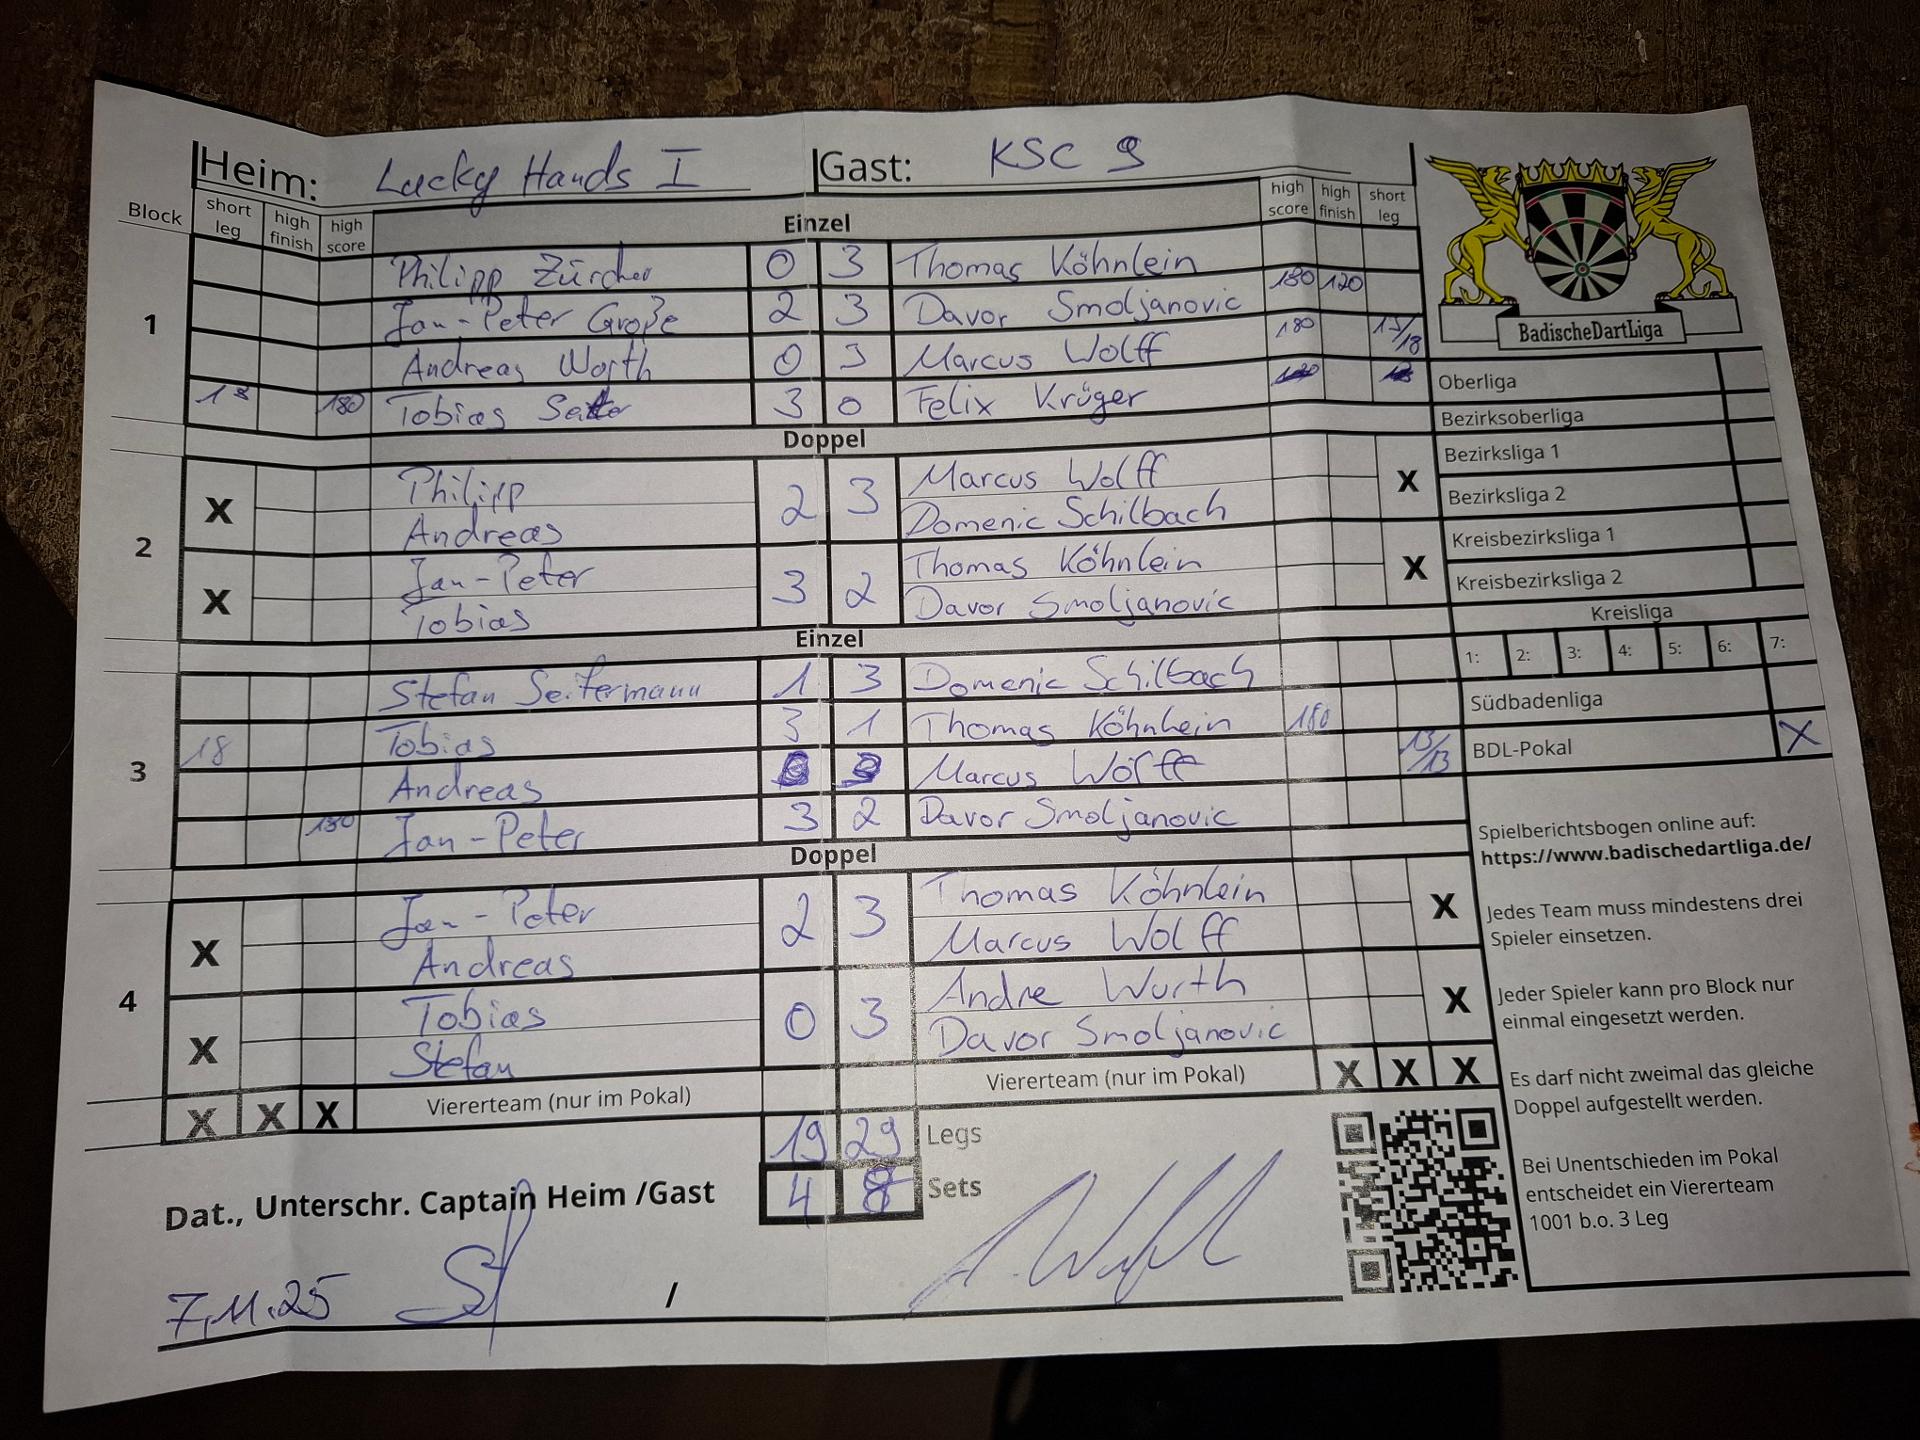 Heim: Lucky Hands I Gast: KSC 9
Block short leg high finish high score Einzel high score high finish short leg
1
Philipp Zürcher 0 3 Thomas Köhnlein
Jan-Peter Große 2 3 Davor Smoljanovic 180 120
Andreas Worth 0 3 Marcus Wolff 180 15/18
18 180 Tobias 3 0 Felix Krüger
Doppel
2
X Philipp 2 3 Marcus Wolff X
Andreas Domenic Schilbach
X Jan-Peter 3 2 Thomas Köhnlein X
Tobias Davor Smoljanovic
Einzel
3
Stefan Seitermann 1 3 Domenic Schilbach
18 Tobias 3 1 Thomas Köhnlein 180
Andreas Marcus Wolff 13/13
180 Jan-Peter 3 2 Davor Smoljanovic
Doppel
4
X Jan-Peter 2 3 Thomas Köhnlein X
Andreas Marcus Wolff
X Tobias 0 3 Andre Wurth X
Stefan Davor Smoljanovic
X X X Viererteam (nur im Pokal) Viererteam (nur im Pokal) X X X
19 29 Legs
4 8 Sets
Dat., Unterschr. Captain Heim /Gast
7.11.25 /
BadischeDartLiga
Oberliga
Bezirksoberliga
Bezirksliga 1
Bezirksliga 2
Kreisbezirksliga 1
Kreisbezirksliga 2
Kreisliga
1: 2: 3: 4: 5: 6: 7:
Südbadenliga
BDL-Pokal X
Spielberichtsbogen online auf:
https://www.badischedartliga.de/
Jedes Team muss mindestens drei
Spieler einsetzen.
Jeder Spieler kann pro Block nur
einmal eingesetzt werden.
Es darf nicht zweimal das gleiche
Doppel aufgestellt werden.
Bei Unentschieden im Pokal
entscheidet ein Viererteam
1001 b.o. 3 Leg